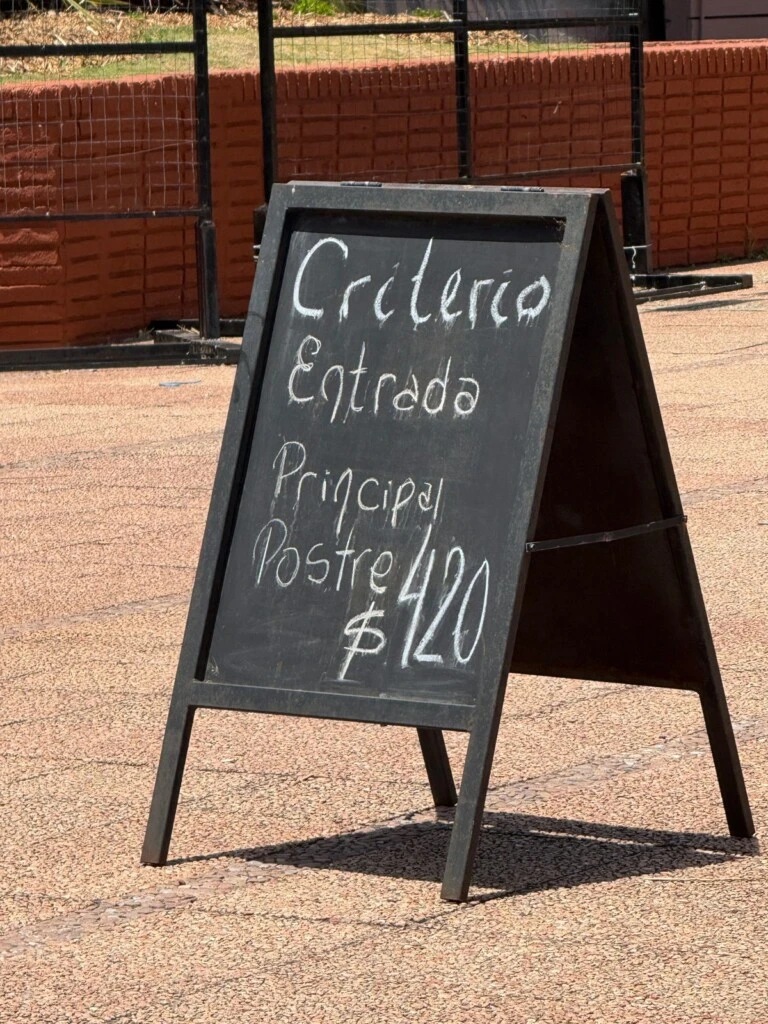 Criterio
Entrada
Principal
Postre
$420